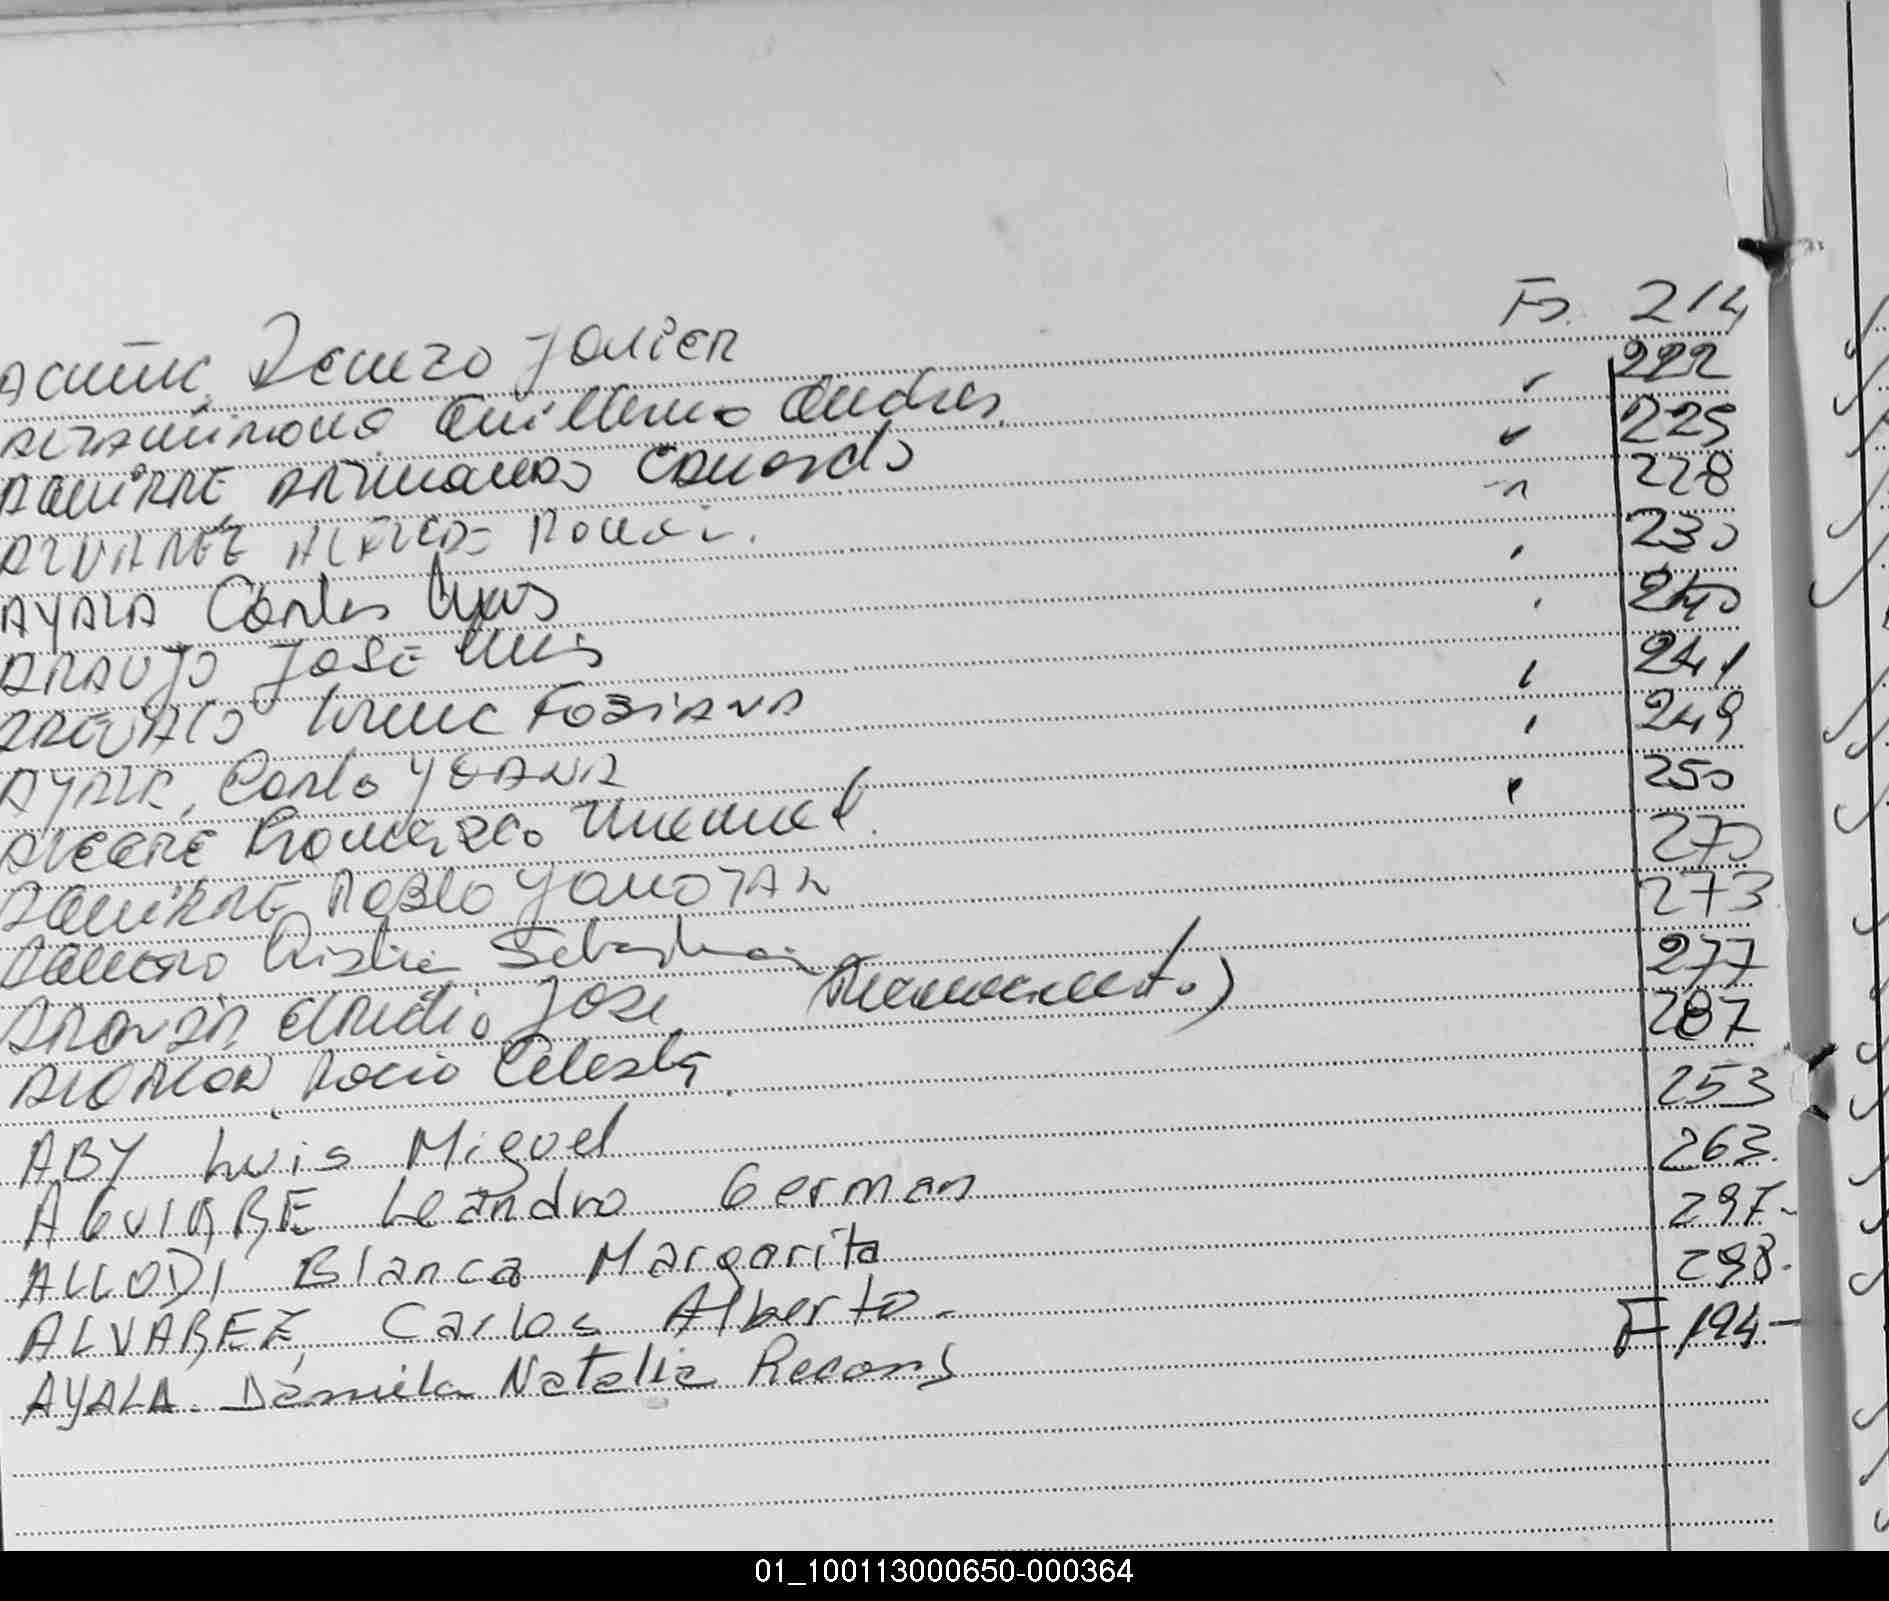 Acuña, Renzo Javier Fs. 214
Altamirano Guillermo Andres 222
Aguirre Armando Eduardo 225
Alvarez Alfredo 228
AYALA Carlos 230
ARAUJO JOSE Luis 240
AREVALO Lorena FABIANA 241
AYALA, Carla YOANA 249
ALEGRE Manuel 250
AGUIRRE PABLO JONOTAN 273
Cristian Sebastian 273
Claudio Jose 277
ALARCON, Rocio Celeste 287
ABY Luis Miguel 253
AGUIRRE Leandro German 263.
ALLODI Blanca Margarita 297-
ALVAREZ, Carlos Alberto. 298.
AYALA. Daniela Natalia F 194-
01_100113000650-000364